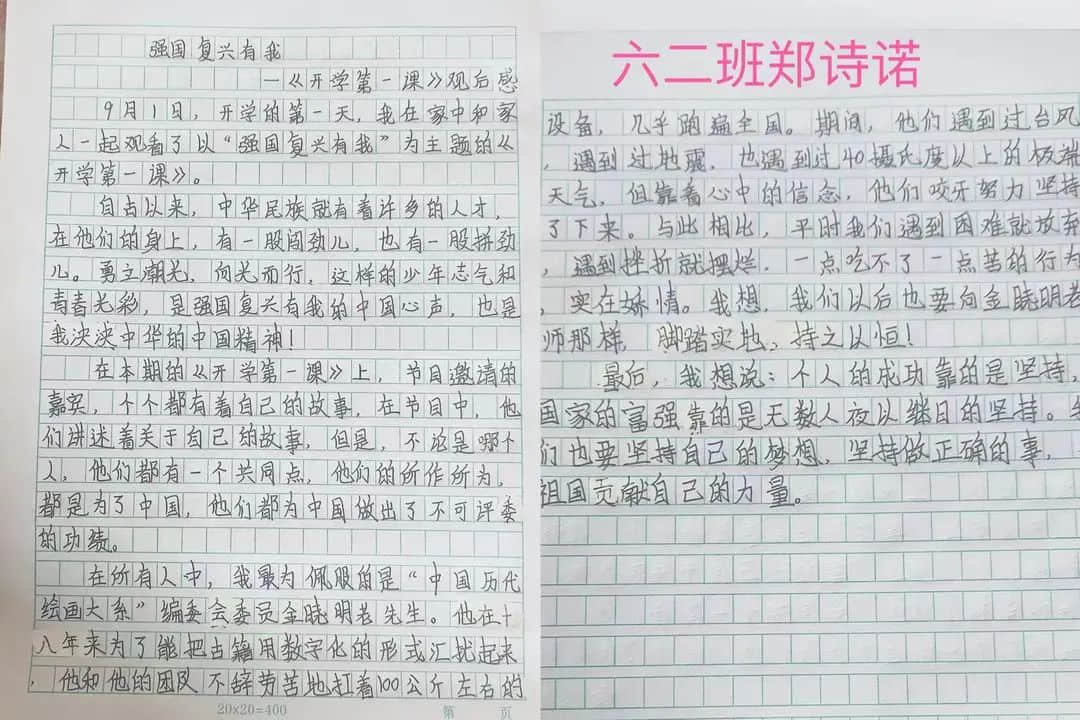 强国复兴有我
—《开学第一课》观后感
9月1日，开学的第一天，我在家中和家
人一起观看了以“强国复兴有我”为主题的《
开学第一课》。
自古以来，中华民族就有着许多的人才，
在他们的身上，有一股闯劲儿，也有一股拼劲
儿。勇立潮光，向光而行，这样的少年志气和
青春光彩，是强国复兴有我的中国心声，也是
我泱泱中华的中国精神！
在本期的《开学第一课》上，节目邀请的
嘉宾，个个都有着自己的故事，在节目中，他
们讲述着关于自己的故事，但是，不论是哪个
人，他们都有一个共同点，他们的所作所为，
都是为了中国，他们都为中国做出了不可评委
的功绩。
在所有人中，我最为佩服的是“中国历代
绘画大系”编委会委员金晓明老先生。他在十
八年来为了能把古籍用数字化的形式汇扰起来
，他和他的团队不辞劳苦地扛着100公斤左右的
20×20=400 第 页
六二班郑诗诺
设备，几乎跑遍全国。期间，他们遇到过台风
，遇到过地震，也遇到过40摄氏度以上的极端
天气，但靠着心中的信念，他们咬牙努力坚持
了下来。与此相比，平时我们遇到困难就放弃
，遇到挫折就摆烂，一点吃不了一点苦的行为
，实在矫情。我想，我们以后也要向金晓明老
师那样，脚踏实地，持之以恒！
最后，我想说：个人的成功靠的是坚持，
国家的富强靠的是无数人夜以继日的坚持。
们也要坚持自己的梦想，坚持做正确的事，
祖国贡献自己的力量。